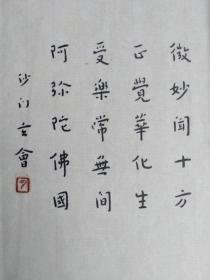 微妙聞十方
正覺華化生
受樂常無間
阿弥陀佛國
沙门玄會